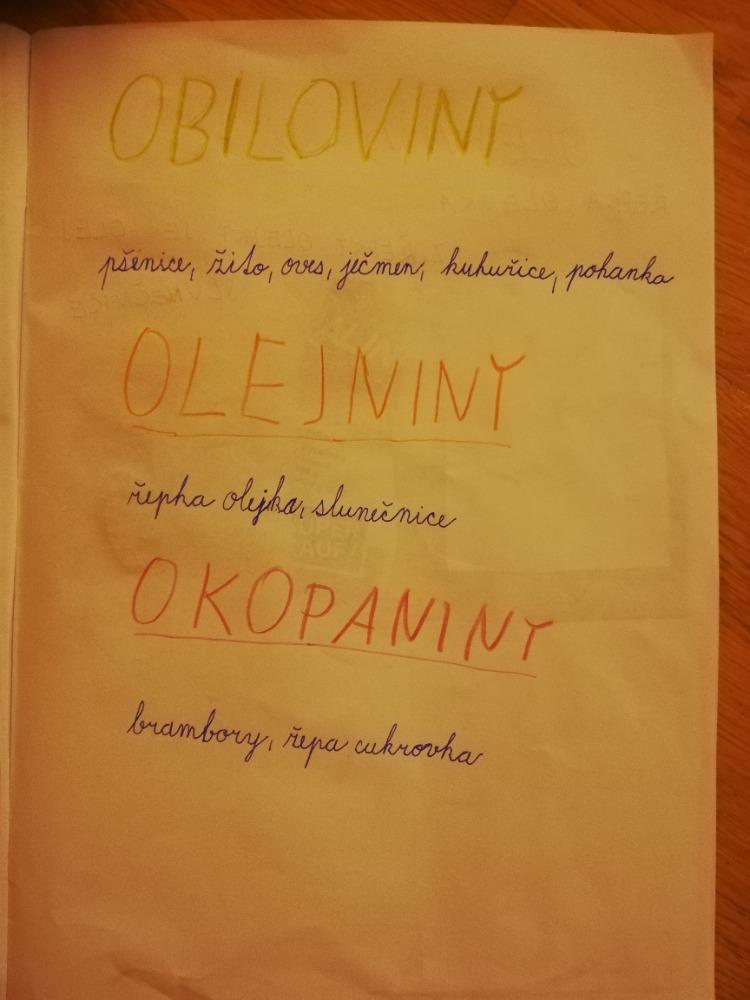 OBILOVINY
pšenice, žito, oves, ječmen, kukuřice, pohanka
OLEJNINY
řepka olejka, slunečnice
OKOPANINY
brambory, řepa cukrovka